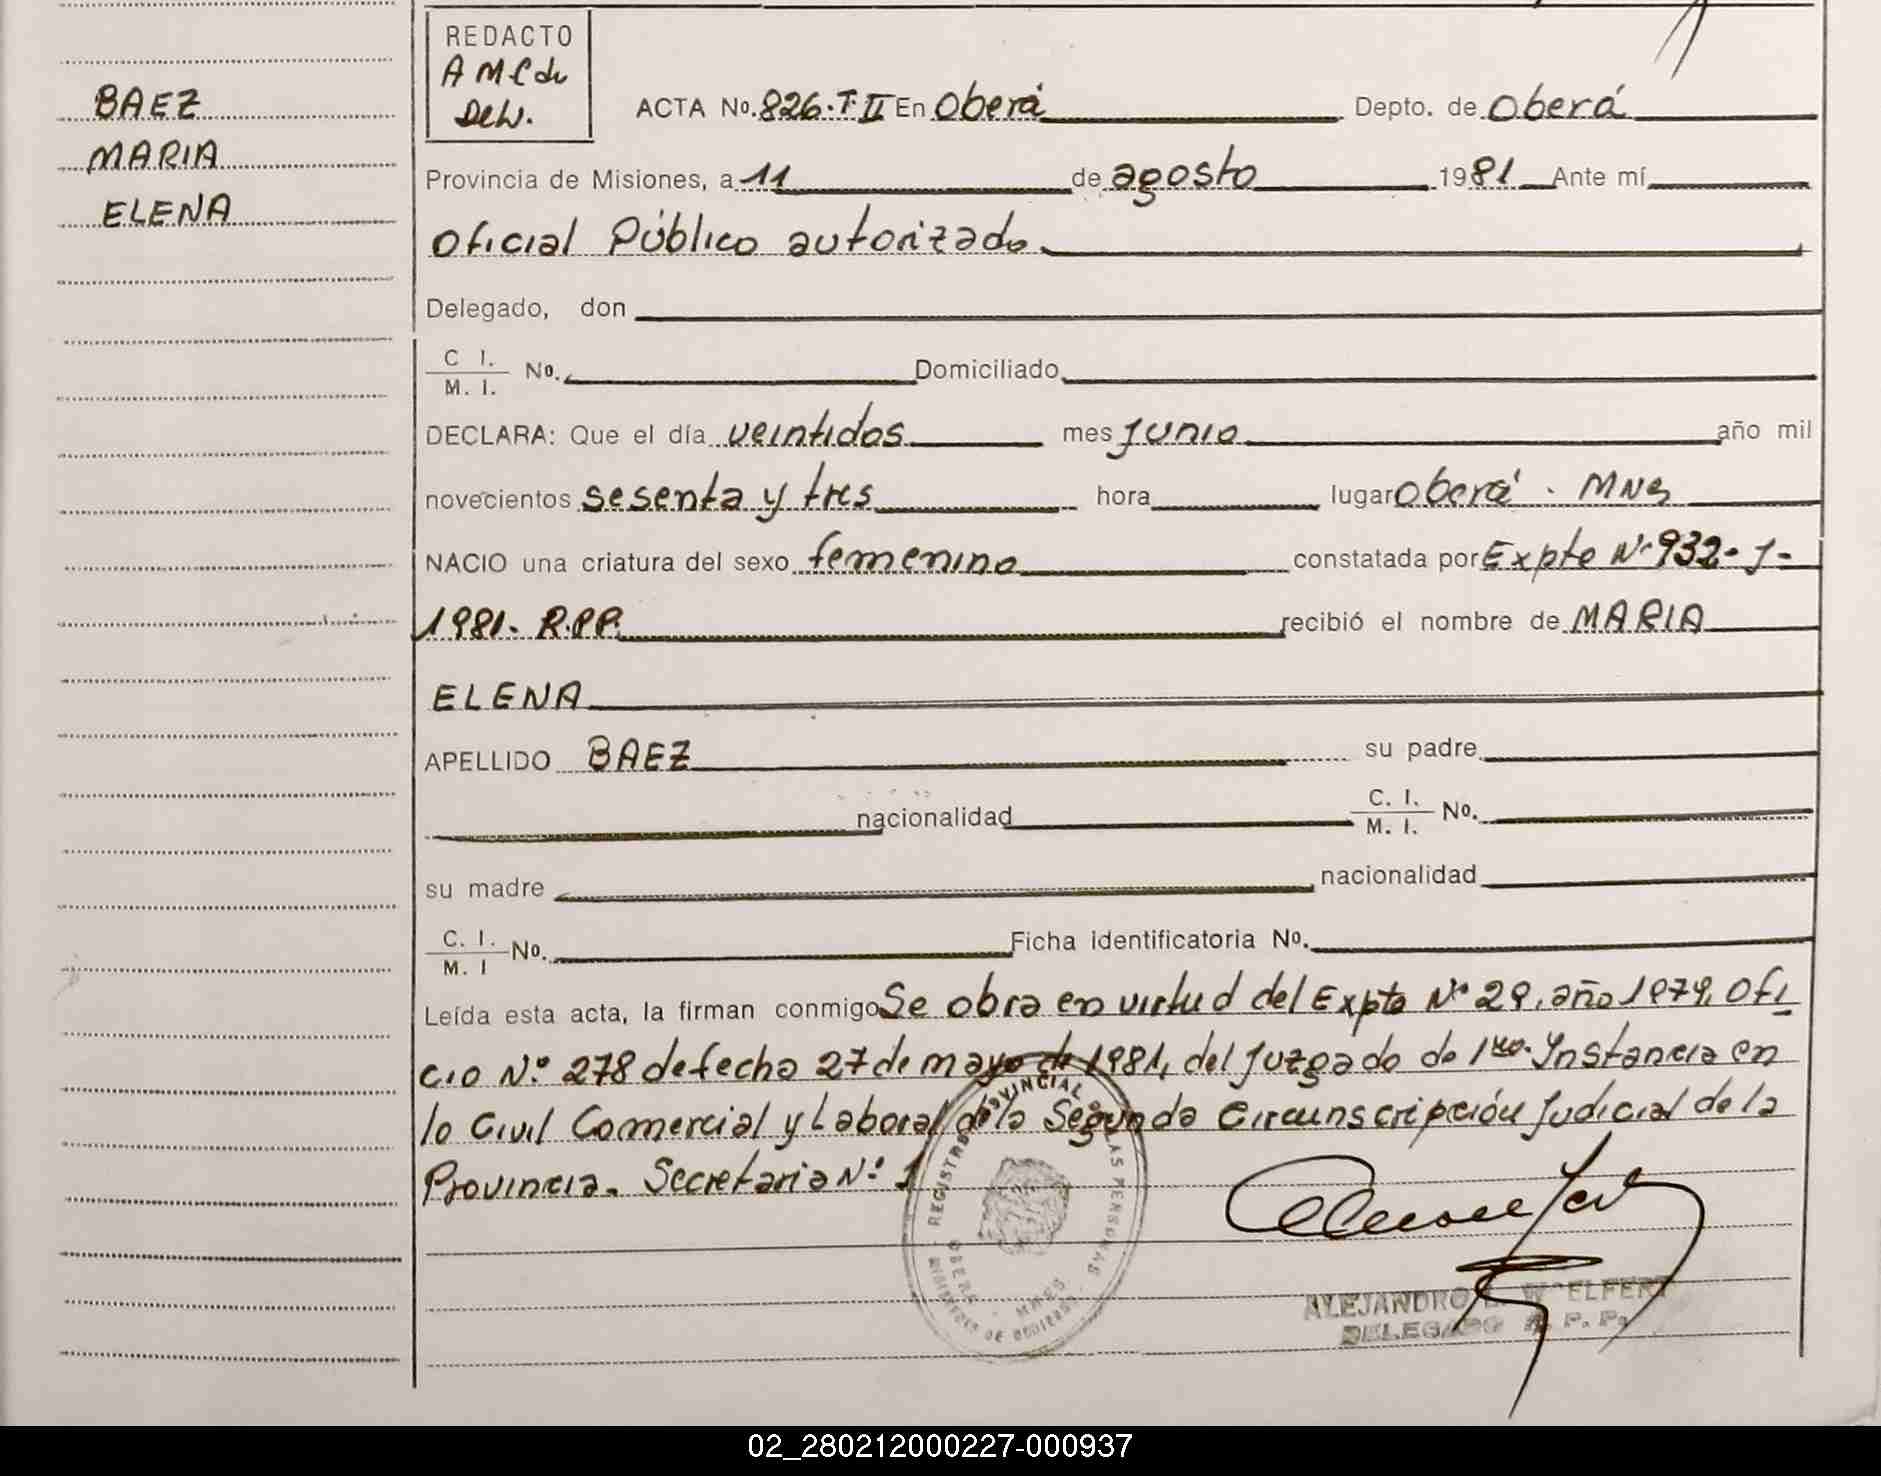 REDACTO
A M C de
Del.
BAEZ
MARIA
ELENA
ACTA No. 826. T. II En Oberá Depto. de Oberá
Provincia de Misiones, a 11 de agosto 1981 Ante mí
Oficial Público autorizado
Delegado, don
C I. / M. I. No. Domiciliado
DECLARA: Que el día veintidos mes Junio año mil
novecientos sesenta y tres hora lugar Oberá . MNS
NACIO una criatura del sexo femenino constatada por Expte Nº 932-J-
1981. R.P.P. recibió el nombre de MARIA
ELENA
APELLIDO BAEZ su padre
nacionalidad C. I. / M. I. No.
su madre nacionalidad
C. I. / M. I No. Ficha identificatoria No.
Leída esta acta, la firman conmigo Se obra en virtud del Expte Nº 29, año 1979, Ofi
cio Nº 278 de fecha 27 de mayo de 1981, del Juzgado de 1ra. Instancia en
lo Civil Comercial y Laboral de la Segunda Circunscripción Judicial de la
Provincia. Secretaria Nº 1
REGISTRO PROVINCIAL DE LAS PERSONAS
MINISTERIO DE GOBIERNO
OBERA - MNES
ALEJANDRO WELFERT
DELEGADO R. P. P.
02_280212000227-000937